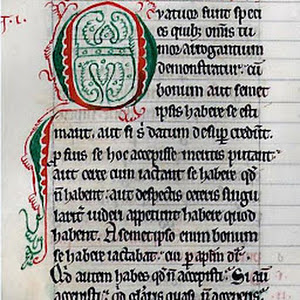 T. L.
Quatuor sunt speci
es quib; omnis tu
mor arrogantium
demonstratur. cū
bonum aut semet
ipsis habere se esti
mant. aut si sibi datum desuper credunt.
pro suis se hoc accepisse meritis putant.
aut certe cum iactant se habere qđ
n̄ habent. aut despectis ceteris singu
lariter videri appetunt habere quod
habent. A semetipso enim bonum
se habere iactabat. cui per apłm dr̄.
Qd autem habes qđ n̄ accepisti. Si aū
accepisti. qđ gloriaris quasi n̄ acceperis